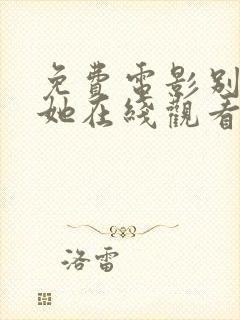 免費電影別
她在綫觀看
洛雷